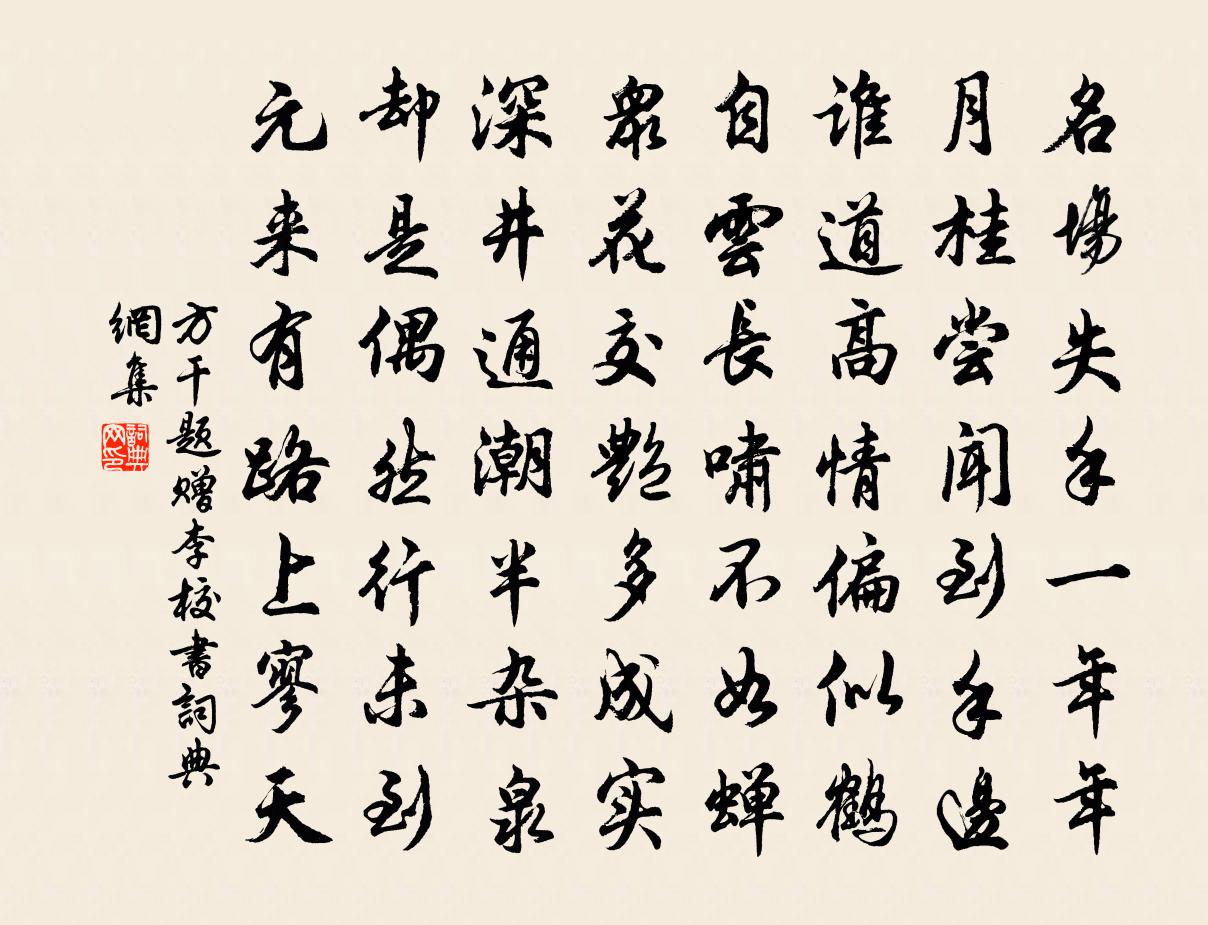 名場失手一年年
月桂尝闻到手邊
谁道高情偏似鶴
自雲長啸不如蝉
衆花交艷多成实
深井通潮半杂泉
却是偶然行未到
元来有路上寥天
方干题赠李校書詞典
網集
詞典
网印